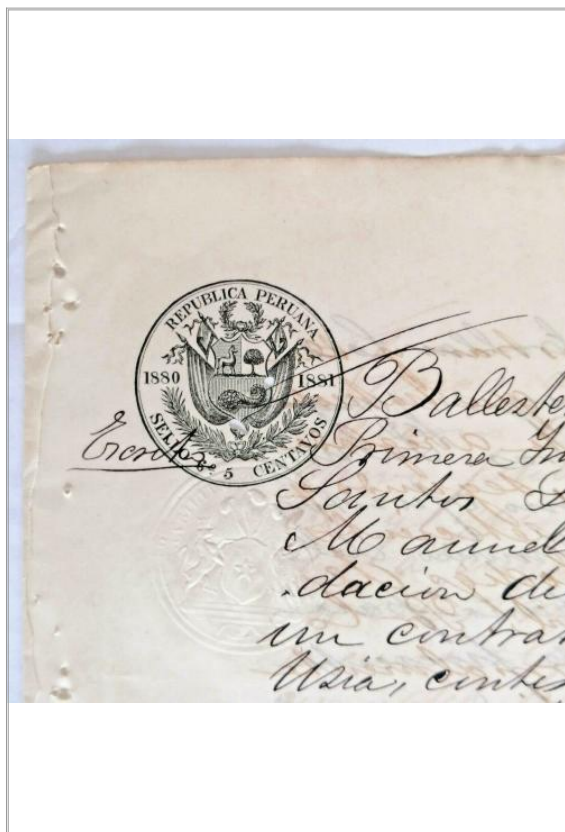 REPUBLICA PERUANA
1880 1881
SELLO 7º 5 CENTAVOS
Escrito
Balleste
Primera In
Santos
Manuel
dacion de
un contra
Usia, contes